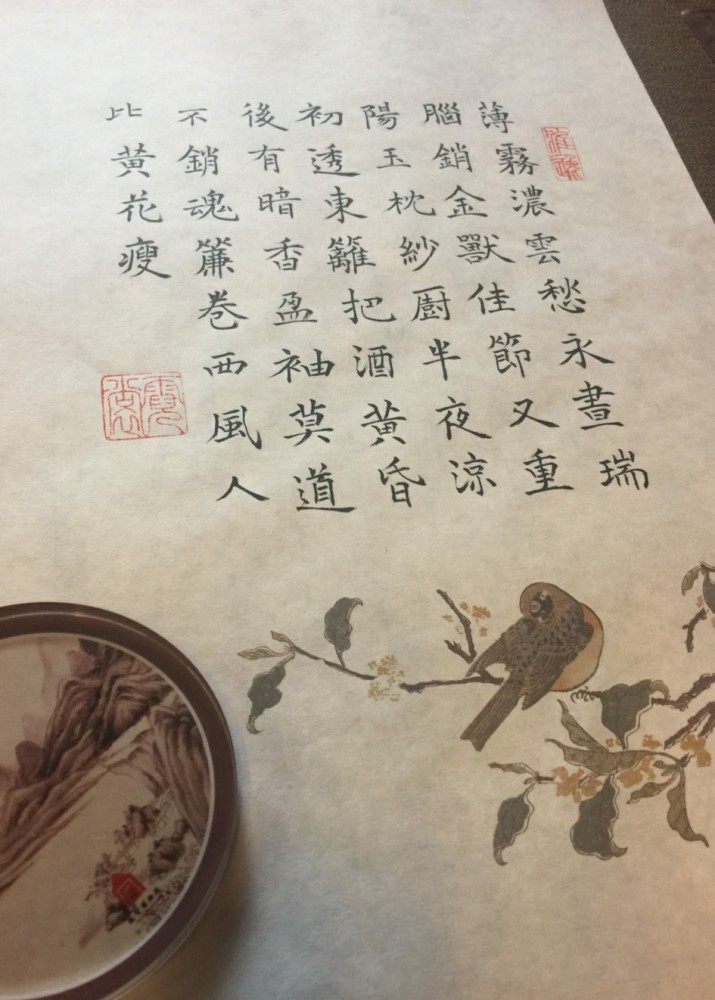 薄霧濃雲愁永晝瑞
腦銷金獸佳節又重
陽玉枕紗厨半夜涼
初透東籬把酒黄昏
後有暗香盈袖莫道
不銷魂簾卷西風人
比黄花瘦